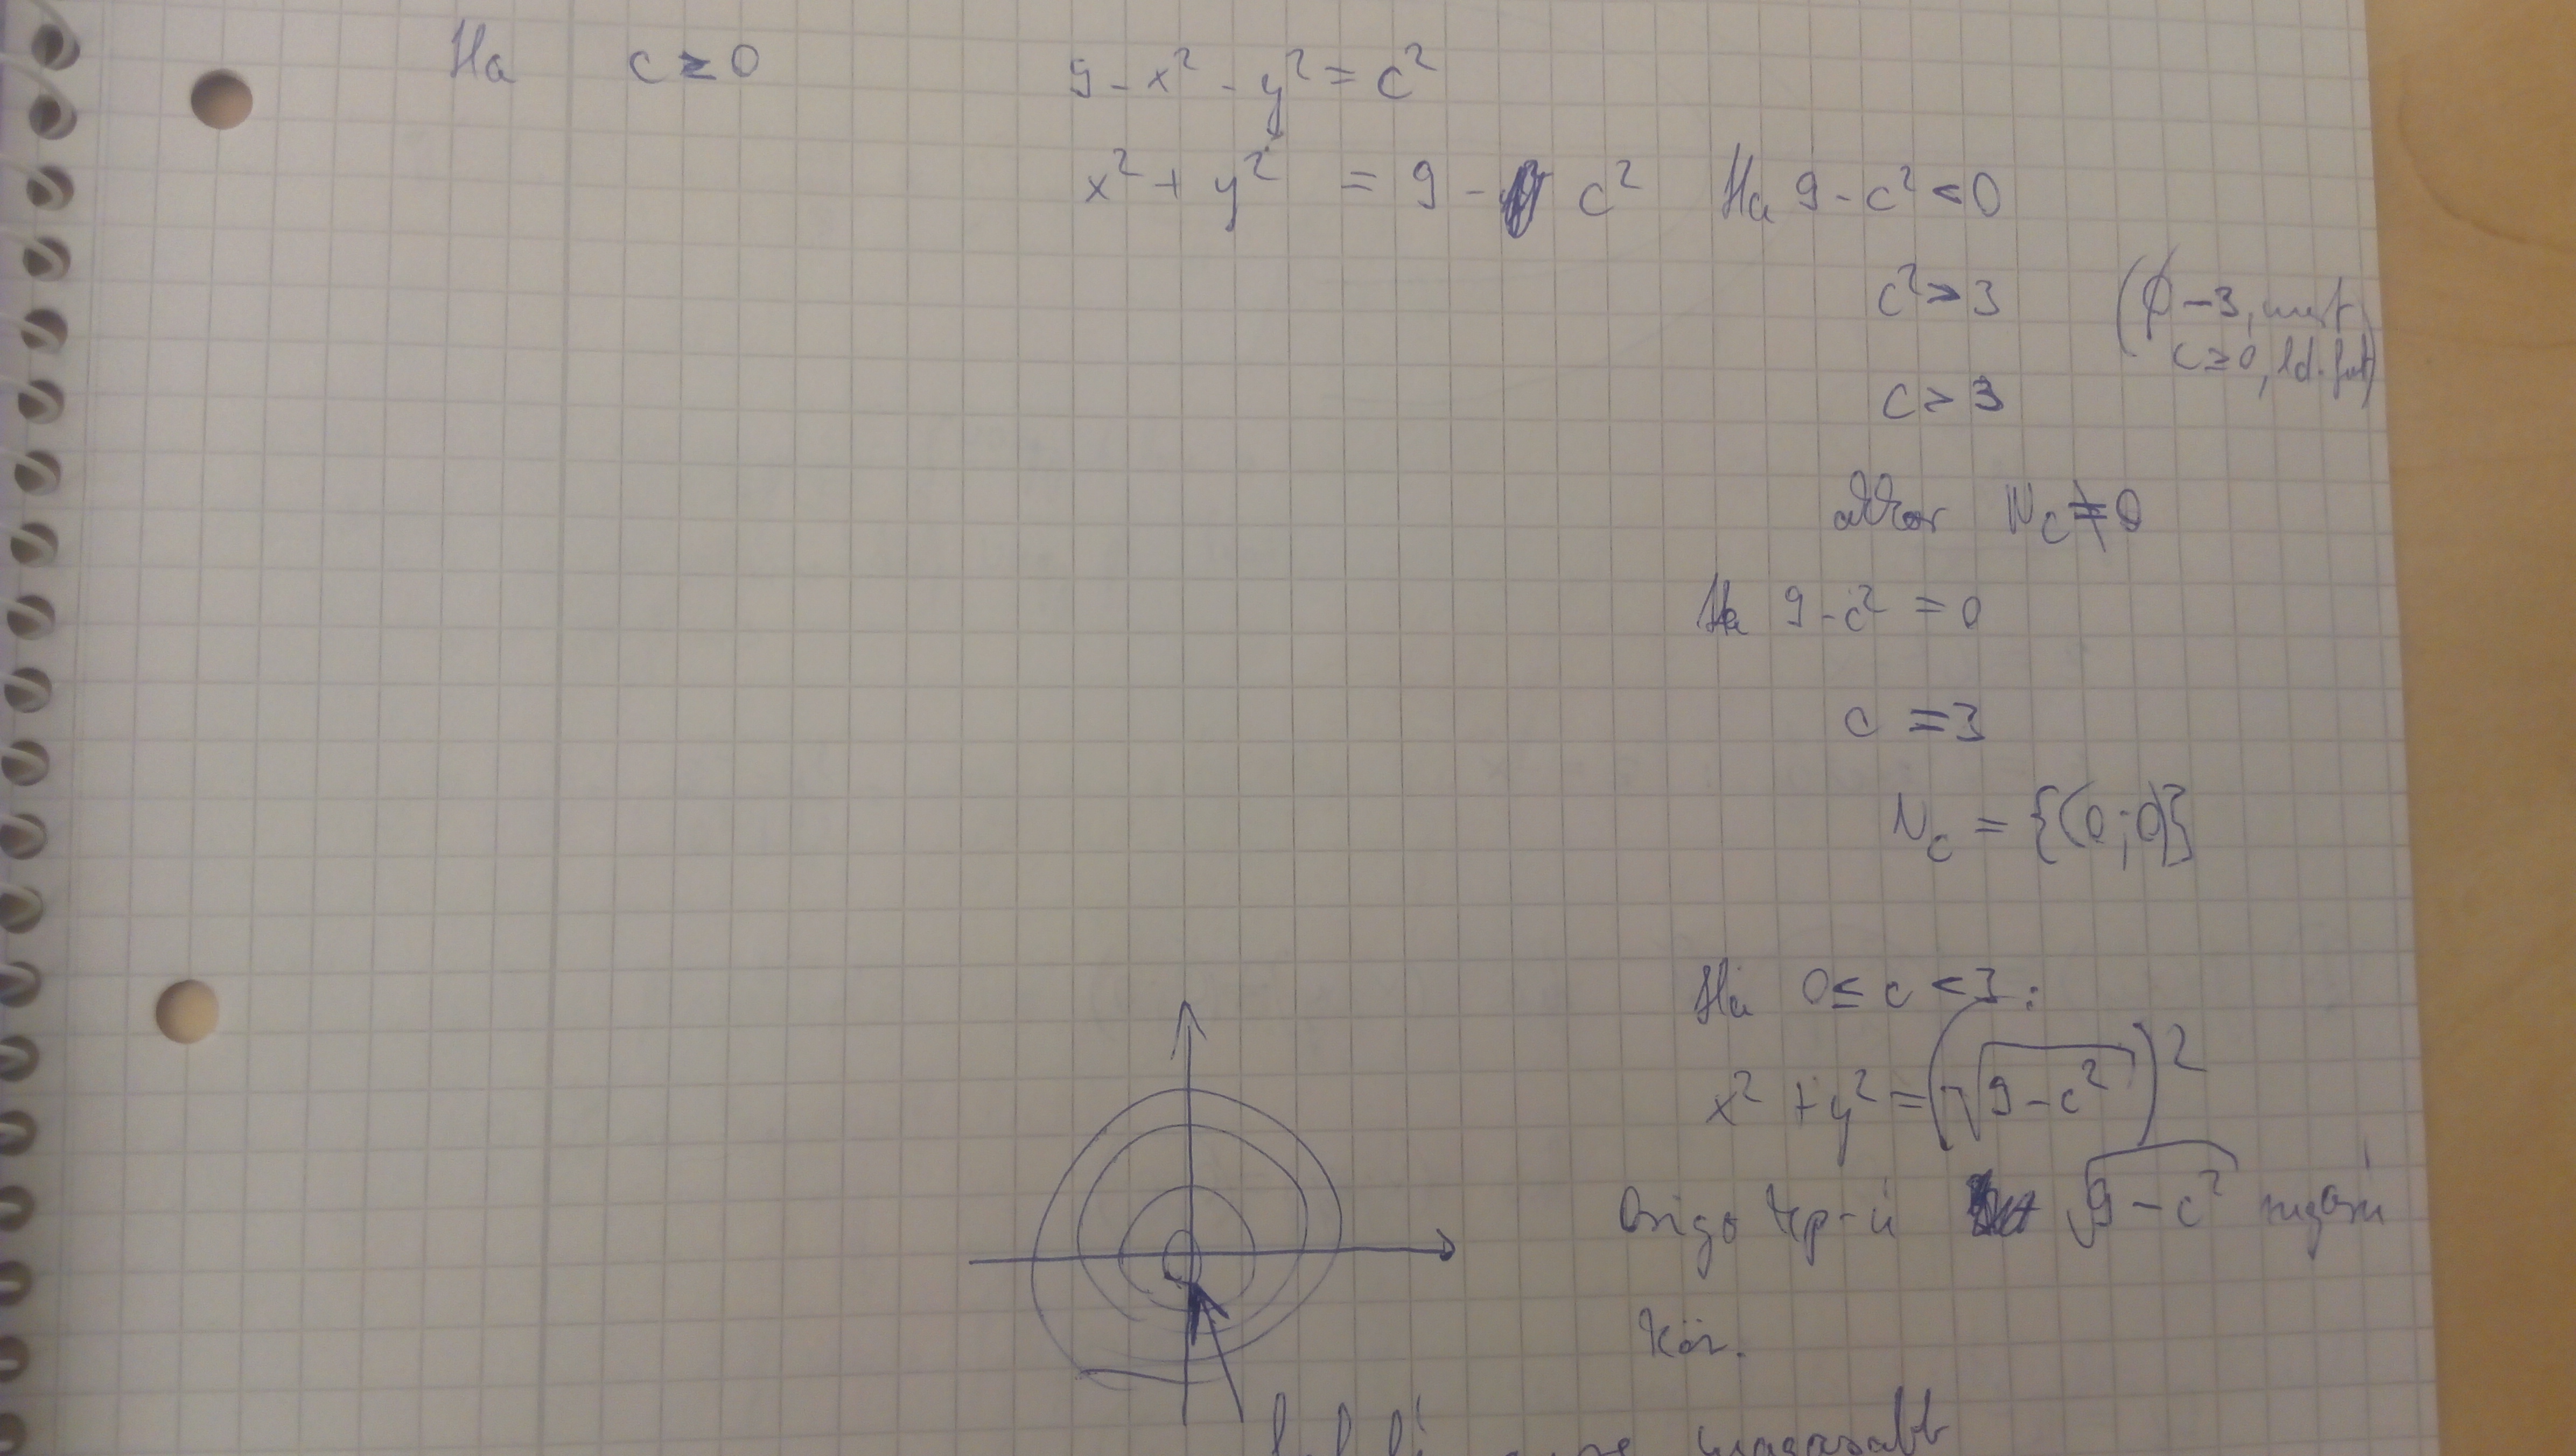 Ha c ≥ 0 9 - x² - y² = c²
x² + y² = 9 - c² Ha 9 - c² < 0
c² > 3 (∅ -3, mert
c ≥ 0, ld. fent)
c > 3
akkor N_c ≠ 0
Ha 9 - c² = 0
c = 3
N_c = {(0;0)}
Ha 0 ≤ c < 3:
x² + y² = (√(9 - c²))²
Origo kp-ú √(9 - c²) sugarú
kör.
magasabb